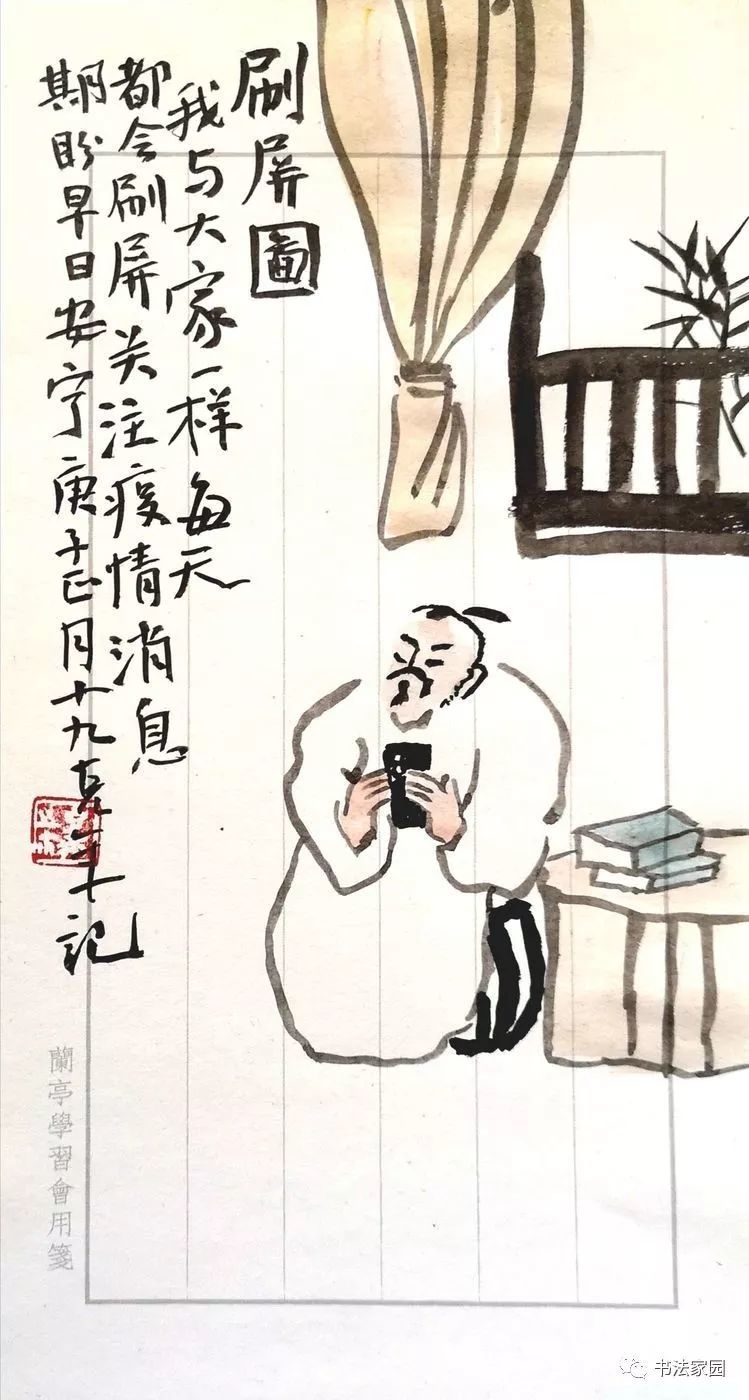 刷屏圖
我与大家一样每天
都会刷屏关注疫情消息
期盼早日安宁庚子正月十九
记
蘭亭學習會用箋
书法家园